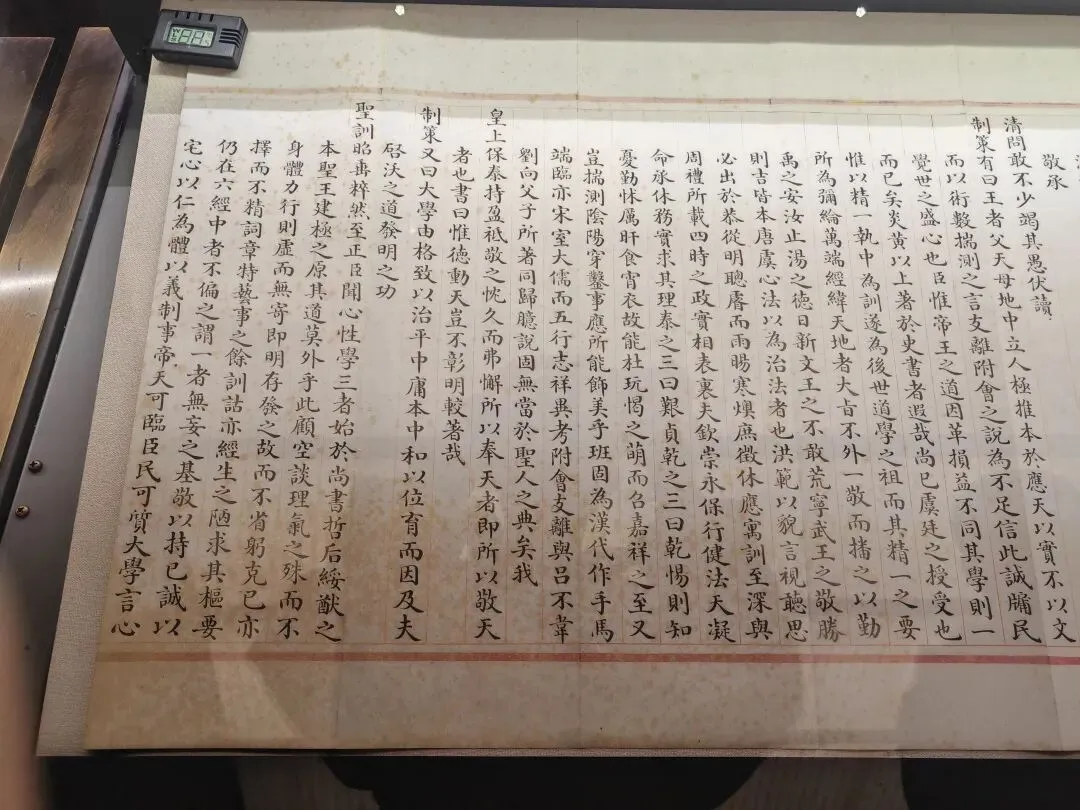 敬承
清問敢不少竭其愚伏讀
制策有曰王者父天母地中立人極推本於應天以實不以文
而以術數揣測之言支離附會之說為不足信此誠牖民
覺世之盛心也臣惟帝王之道因革損益不同其學則一
而已矣炎黃以上著於史書者遐哉尚已虞廷之授受也
惟以精一執中為訓遂為後世道學之祖而其精一之要
所為彌綸萬端經緯天地者大旨不外一敬而播之以勤
禹之安汝止湯之德日新文王之不敢荒寧武王之敬勝
則吉皆本唐虞心法以為治法者也洪範以貌言視聽思
必出於恭從明聰睿而雨暘寒燠庶徵休應寓訓至深與
周禮所載四時之政實相表裏夫欽崇永保行健法天凝
命承休務實求其理泰之三曰艱貞乾之三曰乾惕則知
憂勤怵厲旰食宵衣故能杜玩愒之萌而召嘉祥之至又
豈揣測陰陽穿鑿事應所能飾美乎班固為漢代作手馬
端臨亦宋室大儒而五行志祥異考附會支離與呂不韋
劉向父子所著同歸臆說固無當於聖人之典矣我
皇上保泰持盈祗敬之忱久而弗懈所以奉天者即所以敬天
者也書曰惟德動天豈不彰明較著哉
制策又曰大學由格致以治平中庸本中和以位育而因及夫
啓沃之道發明之功
聖訓昭垂粹然至正臣聞心性學三者始於尚書哲后綏猷之
本聖王建極之原其道莫外乎此顧空談理氣之殊而不
身體力行則虛而無寄即明存發之故而不省躬克己亦
擇而不精詞章特藝事之餘訓詁亦經生之陋求其樞要
仍在六經中者不偏之謂一者無妄之基敬以持己誠以
宅心以仁為體以義制事帝天可臨臣民可質大學言心